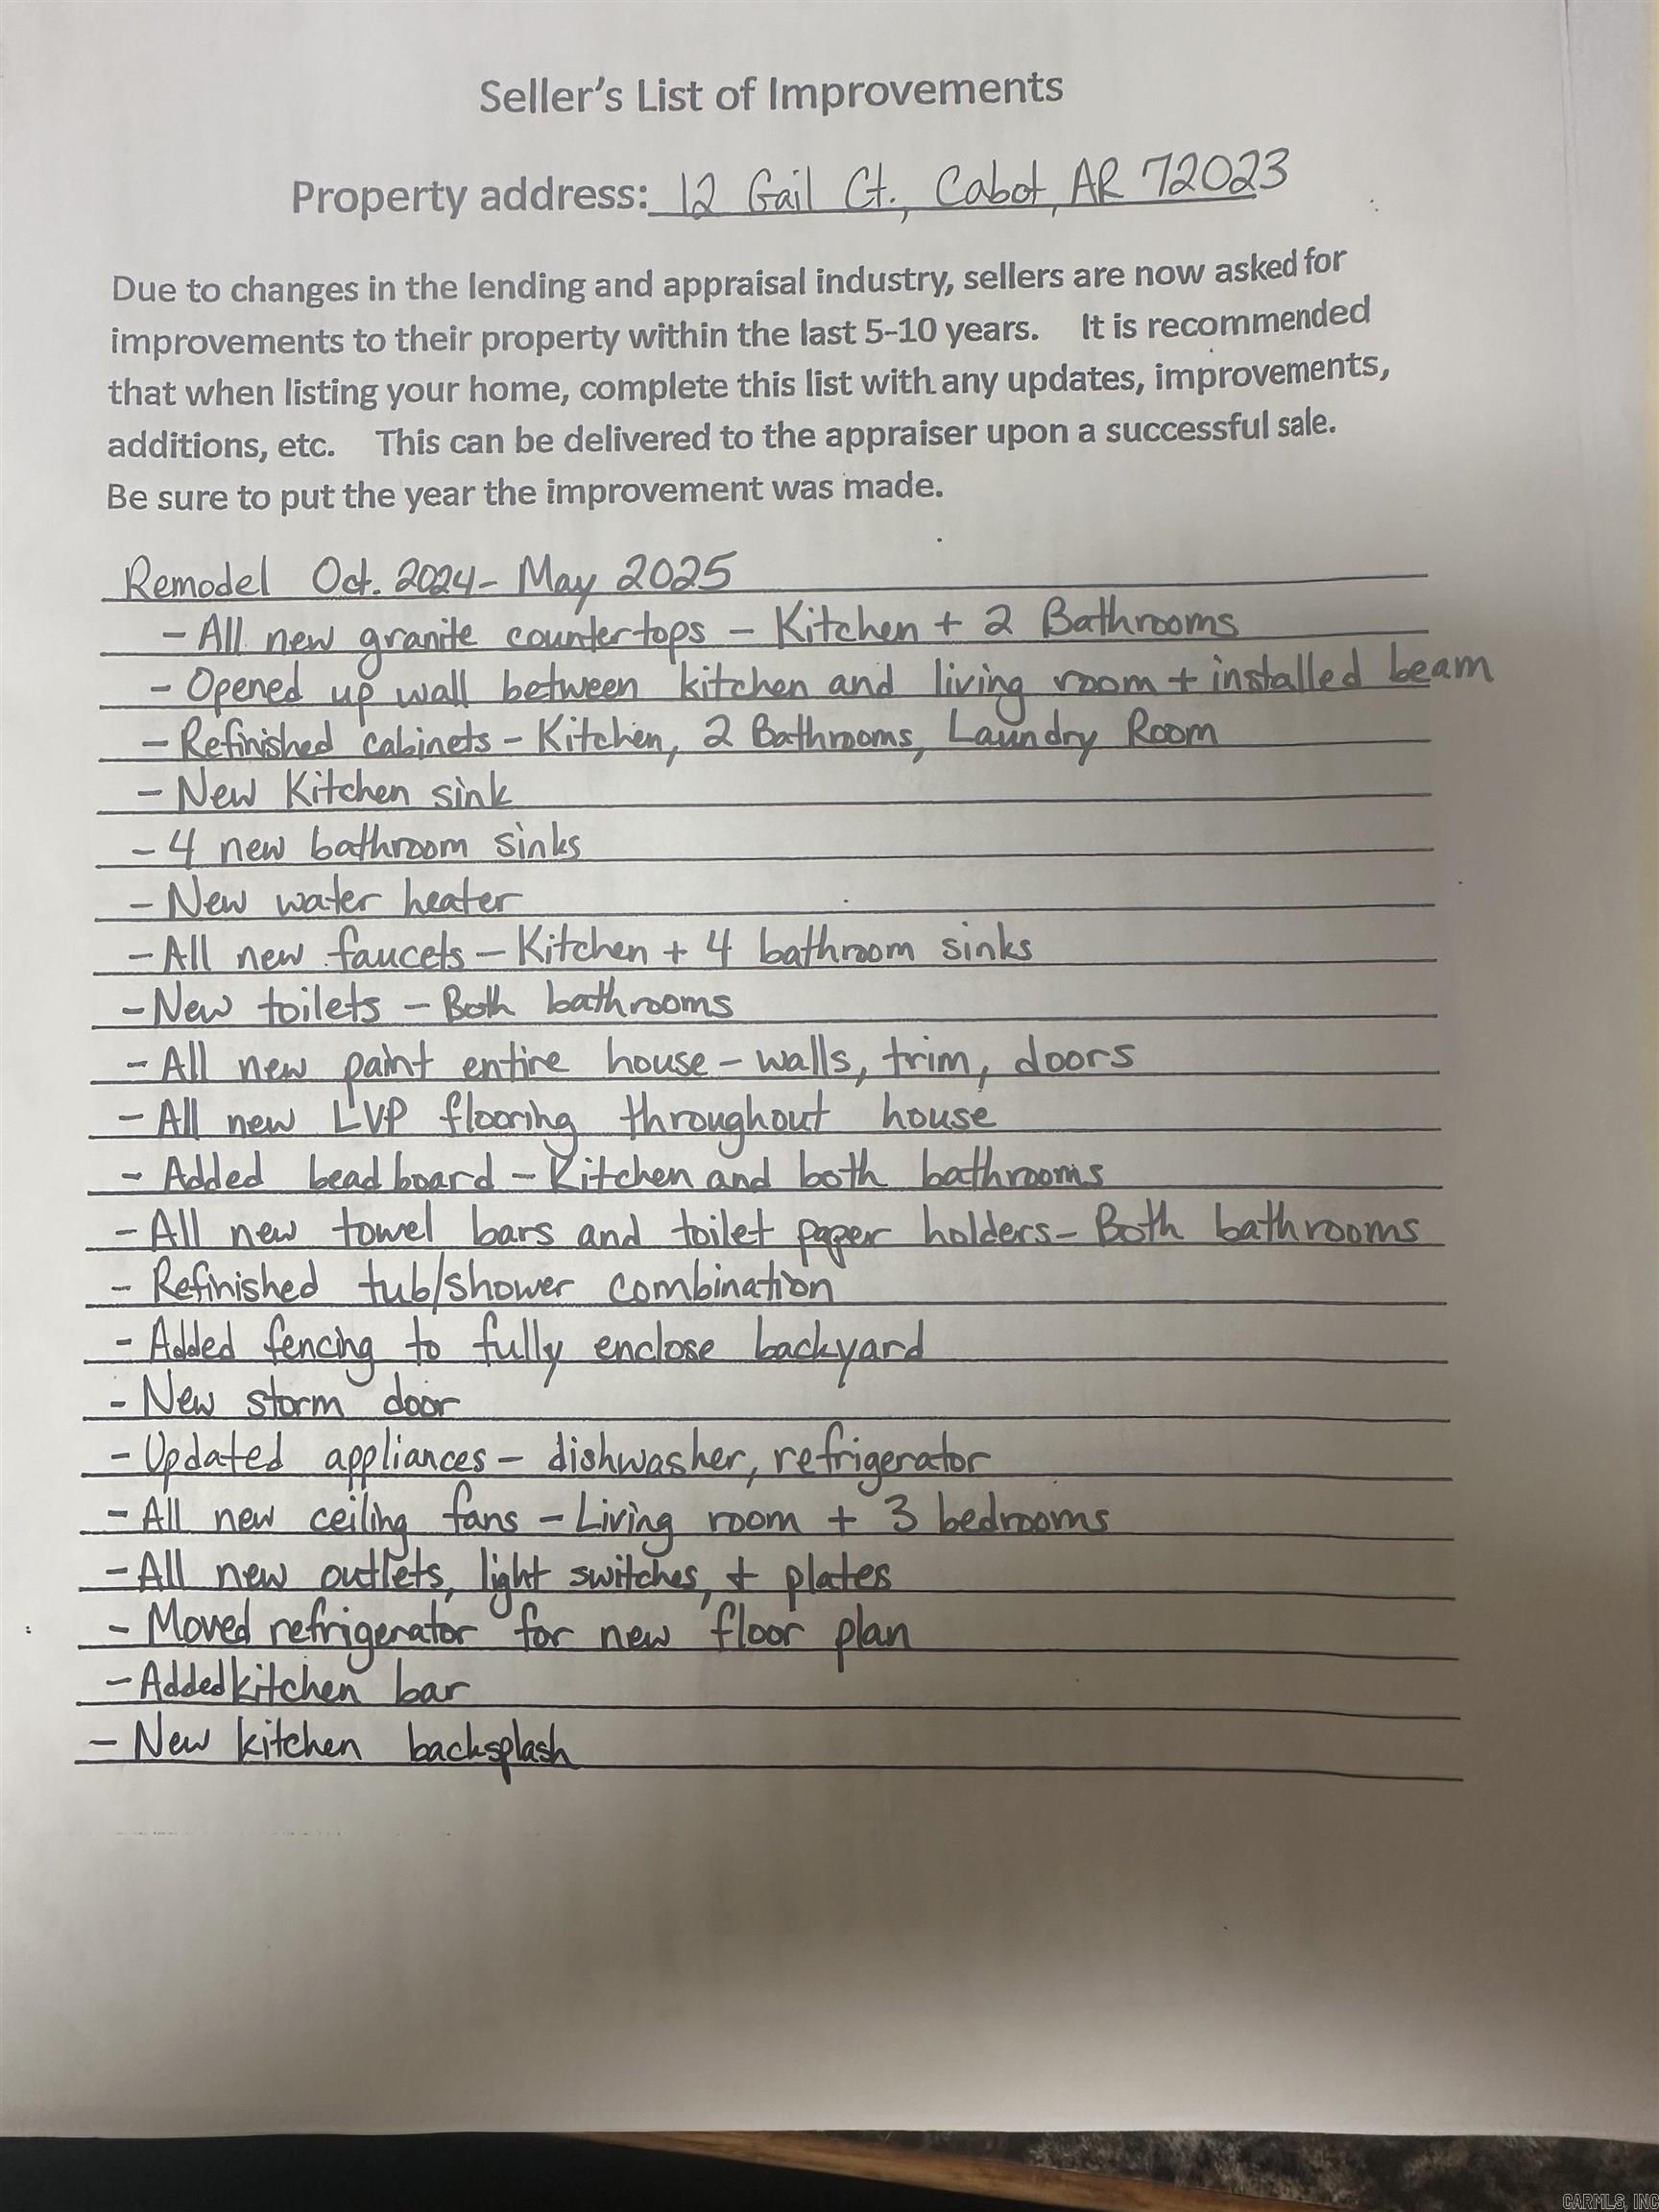 Seller's List of Improvements
Property address: 12 Gail Ct., Cabot, AR 72023
Due to changes in the lending and appraisal industry, sellers are now asked for
improvements to their property within the last 5-10 years. It is recommended
that when listing your home, complete this list with any updates, improvements,
additions, etc. This can be delivered to the appraiser upon a successful sale.
Be sure to put the year the improvement was made.
Remodel Oct. 2024- May 2025
- All new granite countertops - Kitchen + 2 Bathrooms
- Opened up wall between kitchen and living room + installed beam
- Refinished cabinets - Kitchen, 2 Bathrooms, Laundry Room
- New Kitchen sink
- 4 new bathroom sinks
- New water heater
- All new faucets - Kitchen + 4 bathroom sinks
- New toilets - Both bathrooms
- All new paint entire house - walls, trim, doors
- All new LVP flooring throughout house
- Added beadboard - Kitchen and both bathrooms
- All new towel bars and toilet paper holders - Both bathrooms
- Refinished tub/shower combination
- Added fencing to fully enclose backyard
- New storm door
- Updated appliances - dishwasher, refrigerator
- All new ceiling fans - Living room + 3 bedrooms
- All new outlets, light switches, + plates
- Moved refrigerator for new floor plan
- Added kitchen bar
- New kitchen backsplash
CARMLS, INC